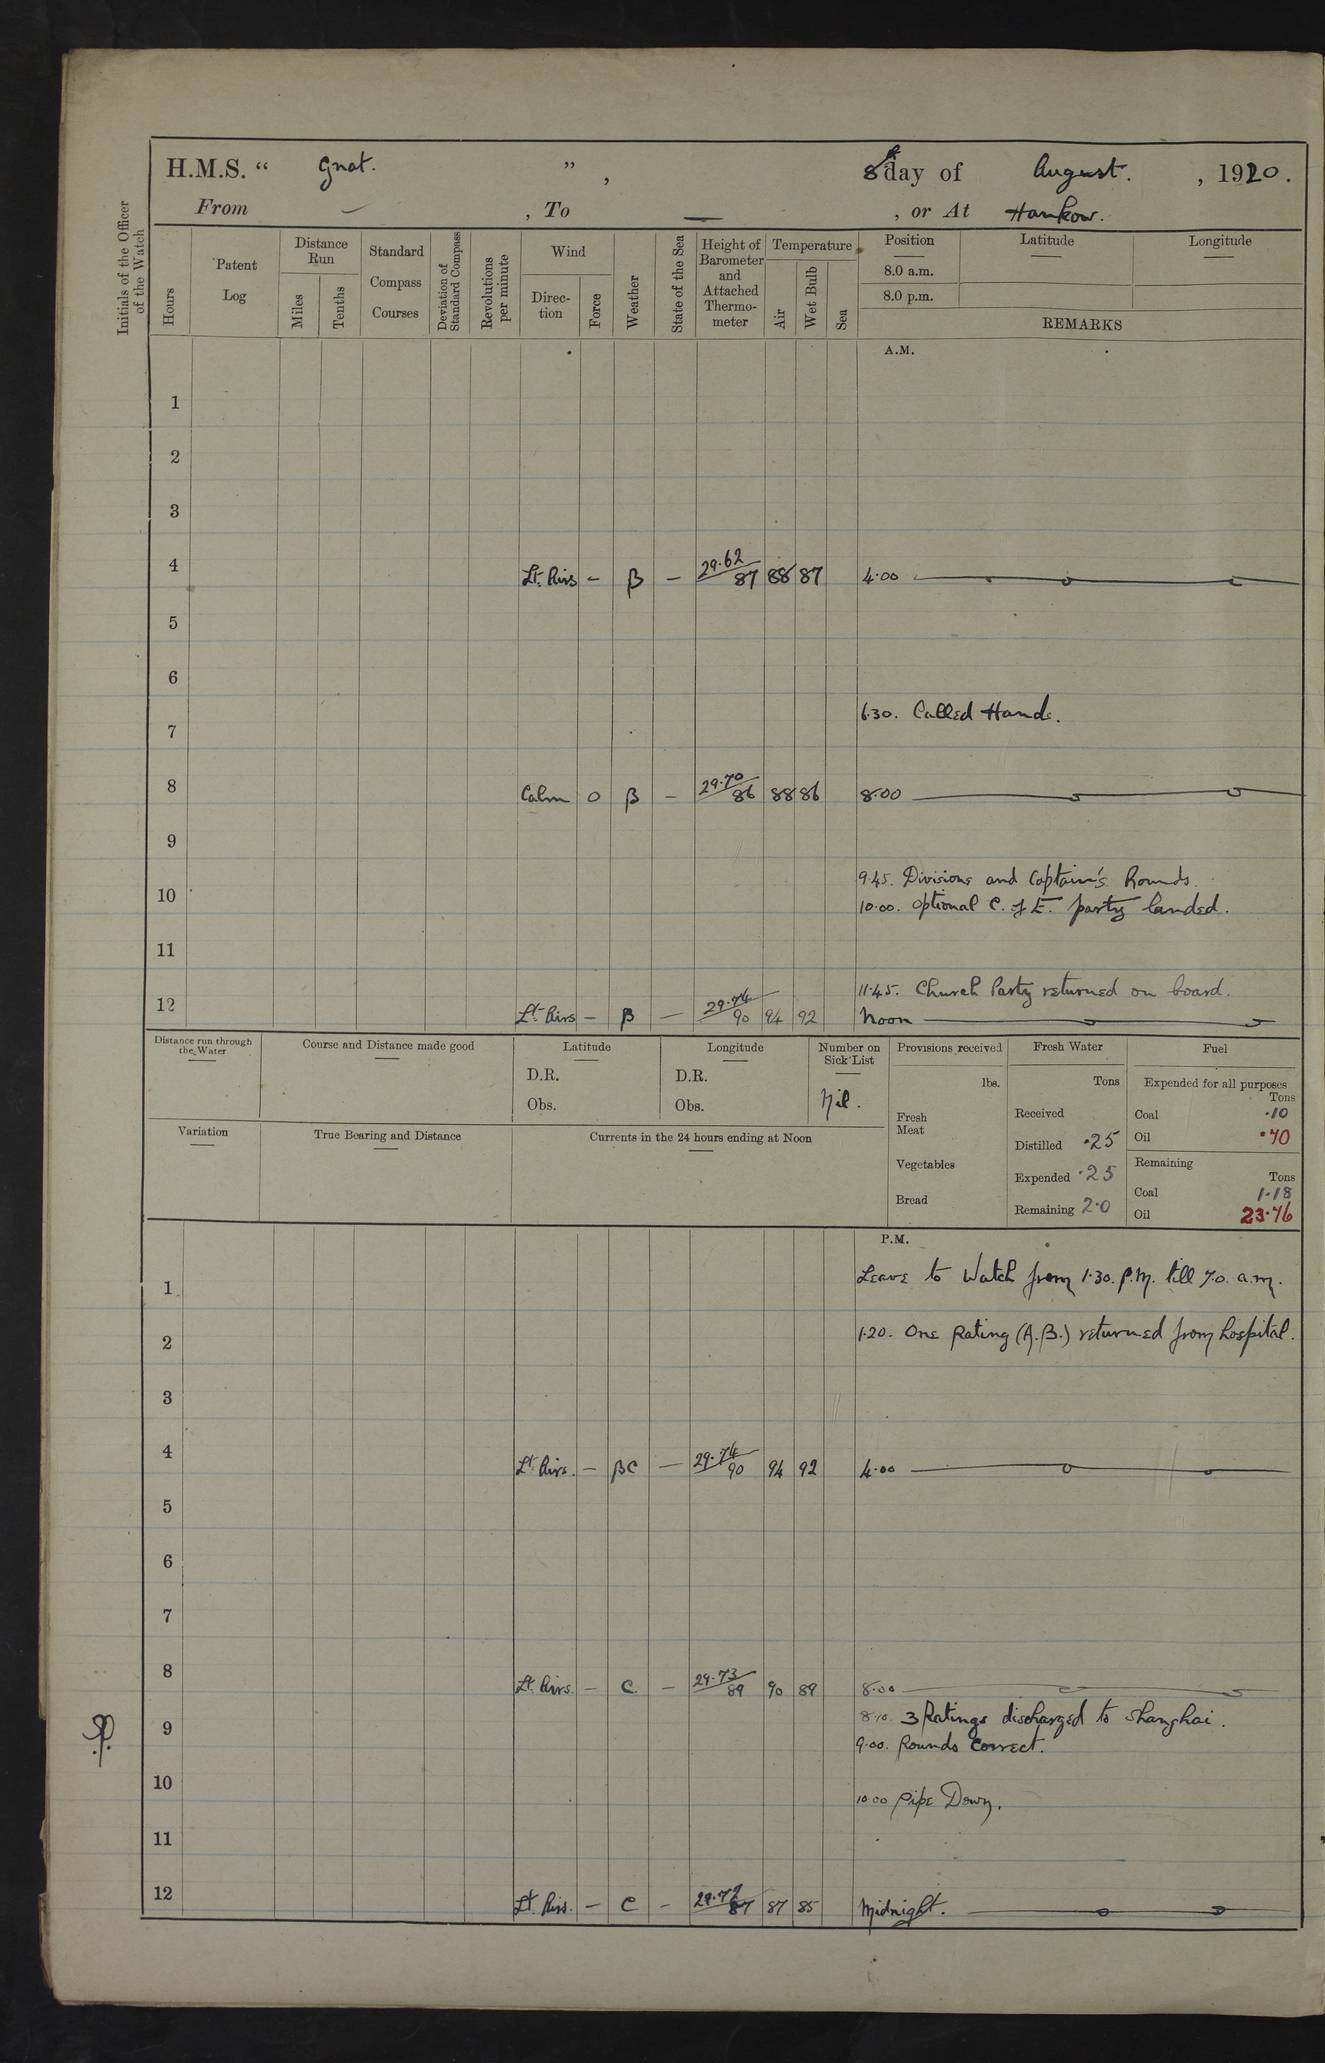 H.M.S. “ Gnat. ” , 8th day of August. , 1920.
From — , To — , or At Hankow.
Initials of the Officer of the Watch
Hours
Patent Log
Distance Run
Miles
Tenths
Standard Compass Courses
Deviation of Standard Compass
Revolutions per minute
Wind
Direc-tion
Force
Weather
State of the Sea
Height of Barometer and Attached Thermo-meter
Temperature
Air
Wet Bulb
Sea
Position
8.0 a.m.
8.0 p.m.
Latitude
Longitude
REMARKS
A.M.
1
2
3
4 Lt. Airs – B – 29.62/87 88 87 4.00
5
6
6.30. Called Hands.
7
8 Calm 0 B – 29.70/86 88 86 8.00
9
9.45. Divisions and Captain's Rounds.
10 10.00. Optional C. of E. party landed.
11
11.45. Church Party returned on board.
12 Lt. Airs – B – 29.74/90 94 92 Noon
Distance run through the Water
Course and Distance made good
Latitude
D.R.
Obs.
Longitude
D.R.
Obs.
Number on Sick List
Nil.
Provisions received
lbs.
Fresh Meat
Vegetables
Bread
Fresh Water
Tons
Received
Distilled .25
Expended .25
Remaining 2.0
Fuel
Expended for all purposes
Tons
Coal .10
Oil .70
Remaining
Tons
Coal 1.18
Oil 23.76
Variation
True Bearing and Distance
Currents in the 24 hours ending at Noon
P.M.
Leave to Watch from 1.30. P.M. till 7.0. a.m.
1
1.20. One Rating (A.B.) returned from hospital.
2
3
4 Lt. Airs. – BC – 29.74/90 94 92 4.00
5
6
7
8 Lt. Airs. – C – 29.73/89 90 89 8.00
8.10. 3 Ratings discharged to Shanghai.
9 9.00. Rounds Correct.
10 10.00 Pipe Down.
11
12 Lt. Airs. – C – 29.72/87 87 85 Midnight.